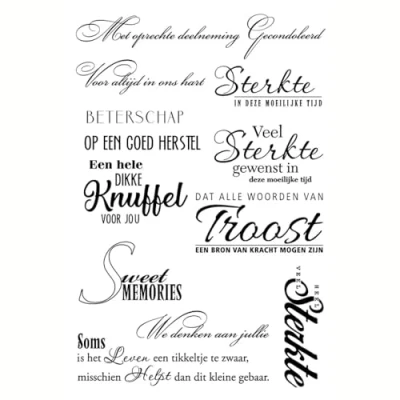 Met oprechte deelneming Gecondoleerd
Voor altijd in ons hart
Sterkte
IN DEZE MOEILIJKE TIJD
BETERSCHAP
OP EEN GOED HERSTEL
Veel
Sterkte
gewenst in
deze moeilijke tijd
Een hele
DIKKE
Knuffel
VOOR JOU
DAT ALLE WOORDEN VAN
Troost
EEN BRON VAN KRACHT MOGEN ZIJN
Sweet
MEMORIES
HEEL
VEEL
Sterkte
We denken aan jullie
Soms
is het Leven een tikkeltje te zwaar,
misschien Helpt dan dit kleine gebaar.